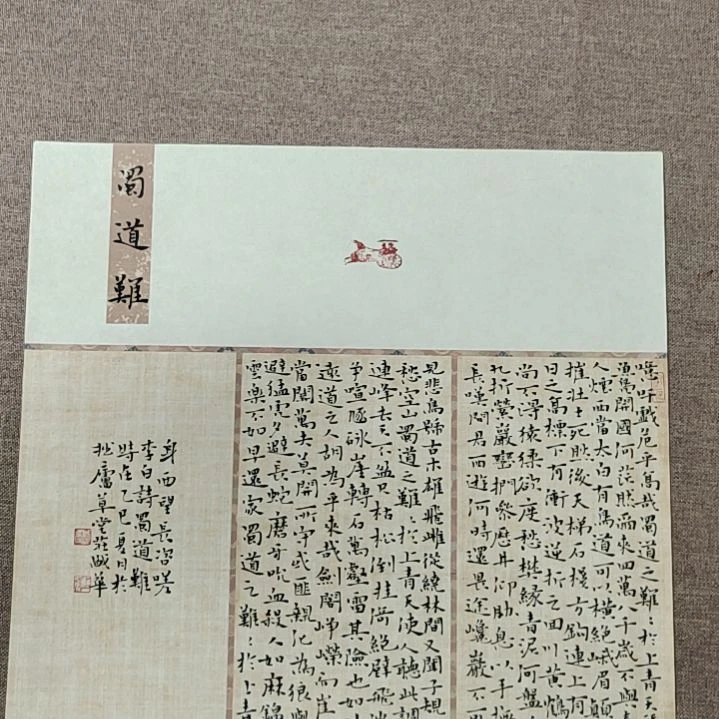 蜀道難
噫吁戲危乎高哉蜀道之難〻於上青天
魚鳧開國何茫然爾來四萬八千歲不與
人煙西當太白有鳥道可以橫絕峨眉顛
摧壯士死然後天梯石棧方鉤連上有
日之高標下有衝波逆折之回川黃鶴
尚不得猿猱欲度愁攀緣青泥何盤
九折縈巖巒捫參歷井仰脅息以手撫
長嘆問君西遊何時還畏途巉巖不可
見悲鳥號古木雄飛雌從繞林間又聞子規
愁空山蜀道之難〻於上青天使人聽此凋
連峰去天不盈尺枯松倒挂倚絕壁飛湍
爭喧豗砯崖轉石萬壑雷其險也如
遠道之人胡為乎來哉劍閣崢嶸而崔
當關萬夫莫開所守或匪親化為狼與
避猛虎夕避長蛇磨牙吮血殺人如麻錦
雲樂不如早還家蜀道之難〻於上青
身西望長咨嗟
李白詩蜀道難
時在乙巳夏月於
廬草堂莊華